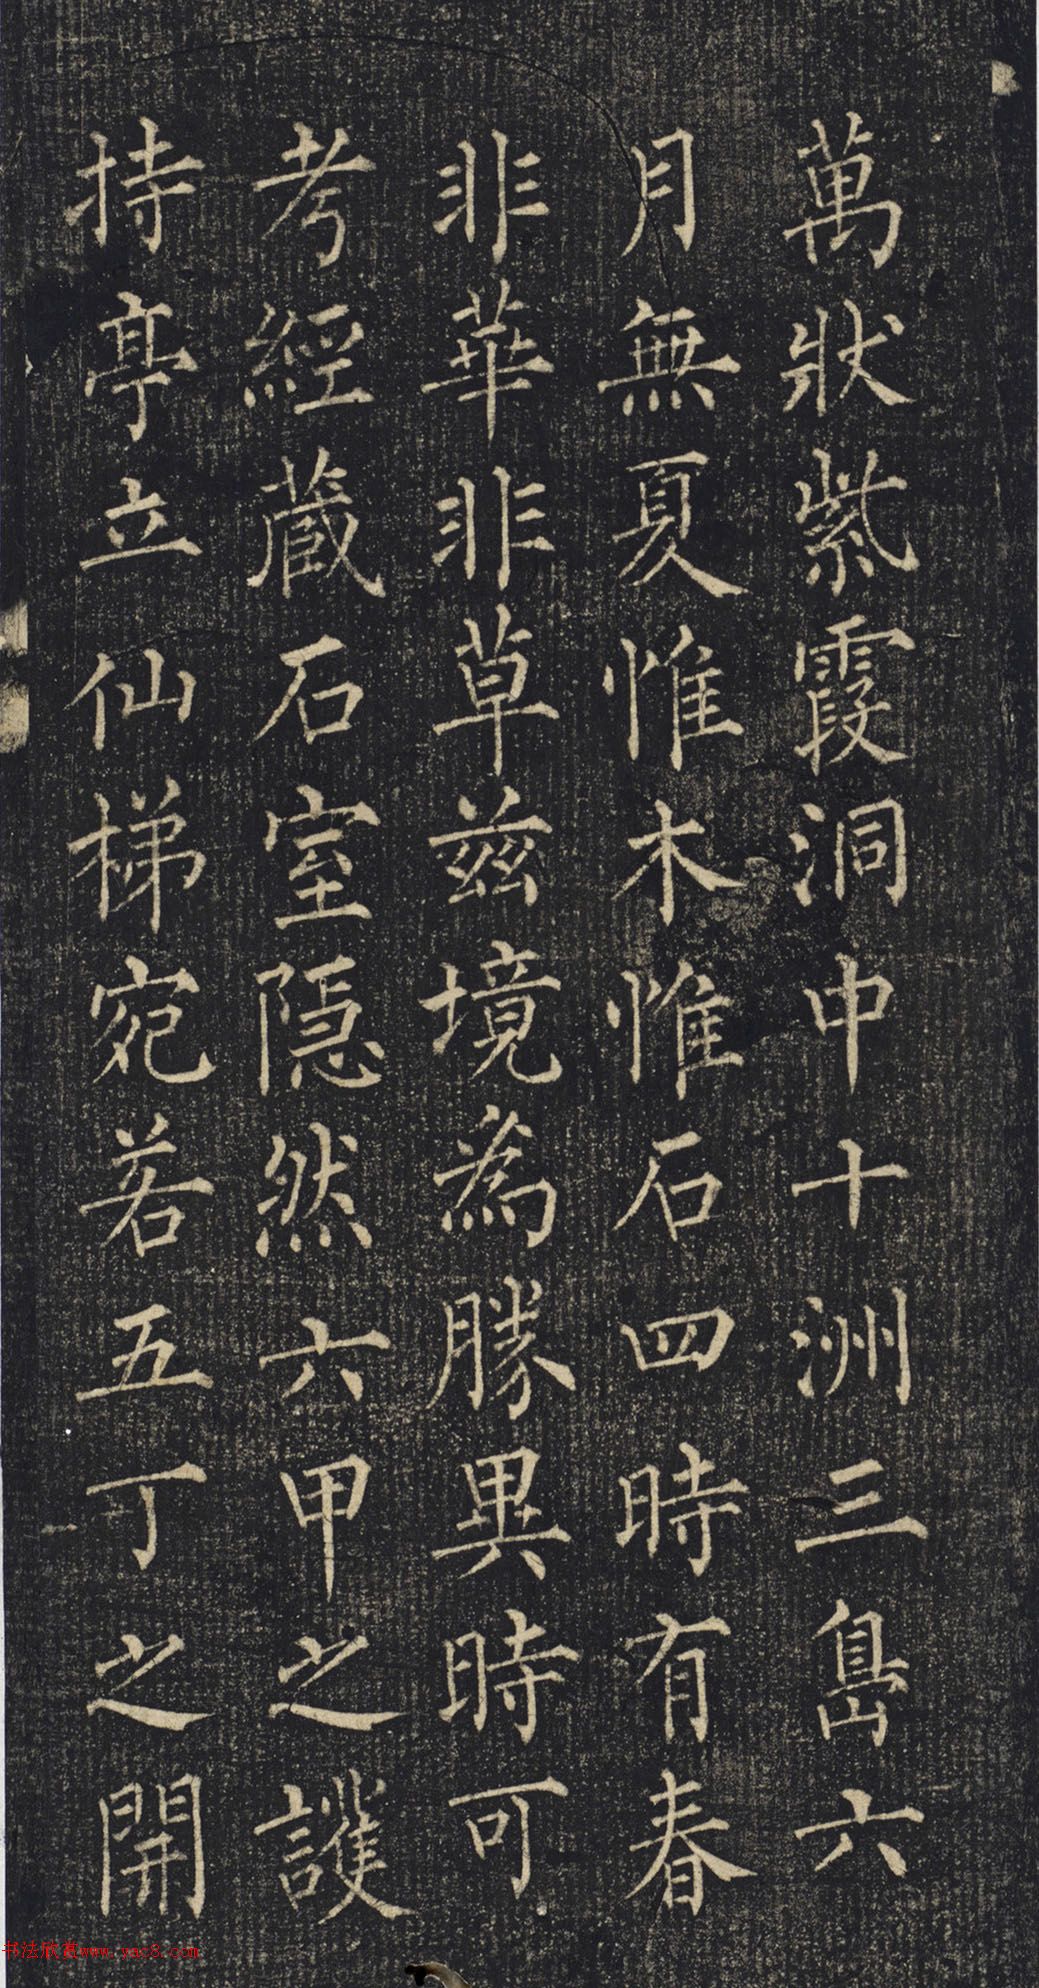 萬狀紫霞洞中十洲三島六
月無夏惟木惟石四時有春
非華非草兹境為勝異時可
考經藏石室隱然六甲之護
持亭立仙梯宛若五丁之開
书法欣赏www.yac8.com